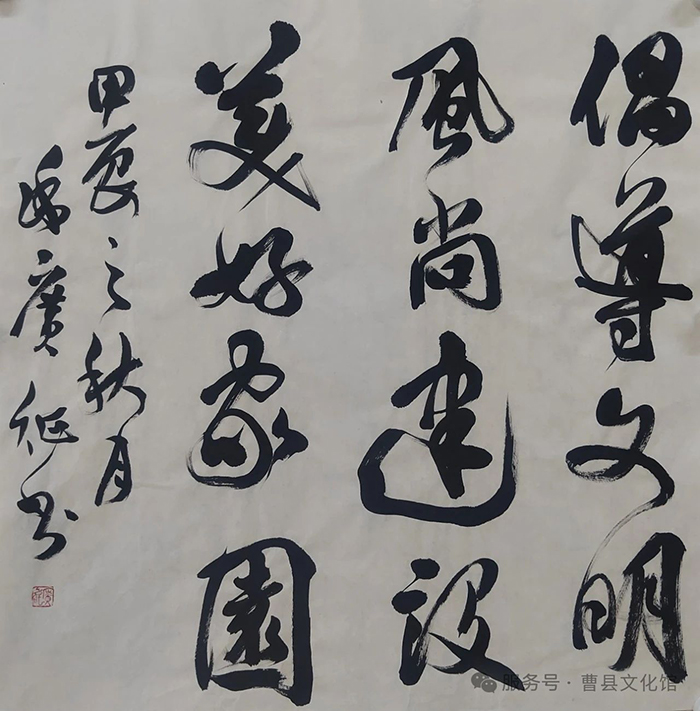 倡導文明
風尚建設
美好家園
甲辰之秋月
廣征书
服务号·曹县文化馆